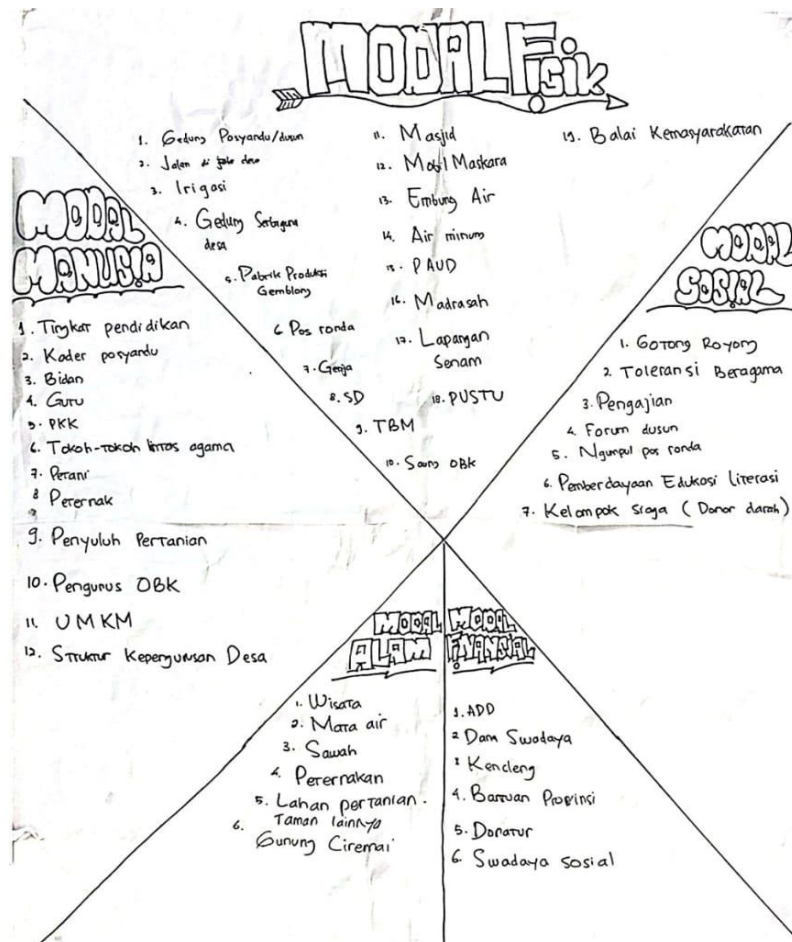 MODAL FiSiK
1. Gedung Posyandu/dusun
2. Jalan di desa
3. Irigasi
4. Gedung Serbaguna
desa
5. Pabrik Produksi
Gemblong
6. Pos ronda
7. Gereja
8. SD
9. TBM
10. Saung OBK
11. Masjid
12. Mobil Maskara
13. Embung Air
14. Air minum
15. PAUD
16. Madrasah
17. Lapangan
Senam
18. PUSTU
19. Balai Kemasyarakatan
MODAL
MANUSiA
1. Tingkat pendidikan
2. Kader posyandu
3. Bidan
4. Guru
5. PKK
6. Tokoh-tokoh lintas agama
7. Petani
8 Peternak
9. Penyuluh Pertanian
10. Pengurus OBK
11. UMKM
12. Struktur Kepengurusan Desa
MODAL
SOSiAL
1. Gotong Royong
2. Toleransi Beragama
3. Pengajian
4. Forum dusun
5. Ngunpul pos ronda
6. Pemberdayaan Edukasi Literasi
7. Kelompok Siaga (Donor darah)
MODAL
ALAM
1. Wisata
2. Mata air
3. Sawah
4. Peternakan
5. Lahan pertanian.
Taman lainnya
6. Gunung Ciremai
MODAL
FiNANSiAL
1. ADD
2 Dana Swadaya
3 Kencleng
4. Bantuan Provinsi
5. Donatur
6. Swadaya sosial